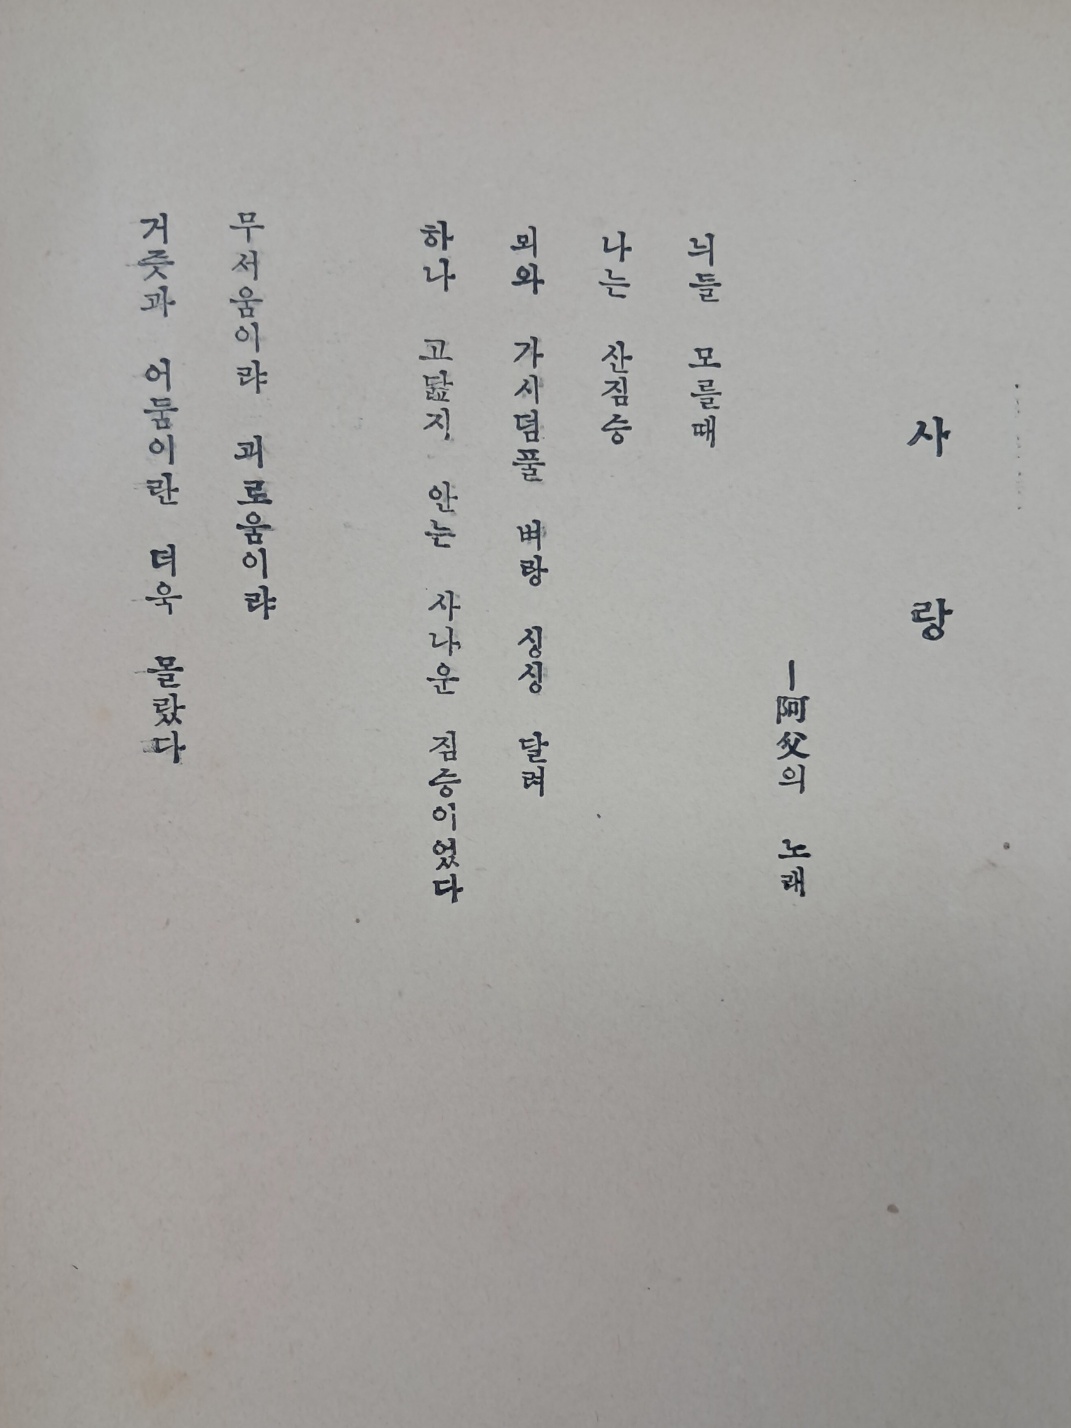 사랑
—阿父의 노래
늬들 모를때
나는 산짐승
뫼와 가시덤풀 벼랑 싱싱 달려
하나 고닲지 안는 사나운 짐승이었다
무서움이랴 괴로움이랴
거즛과 어둠이란 더욱 몰랐다